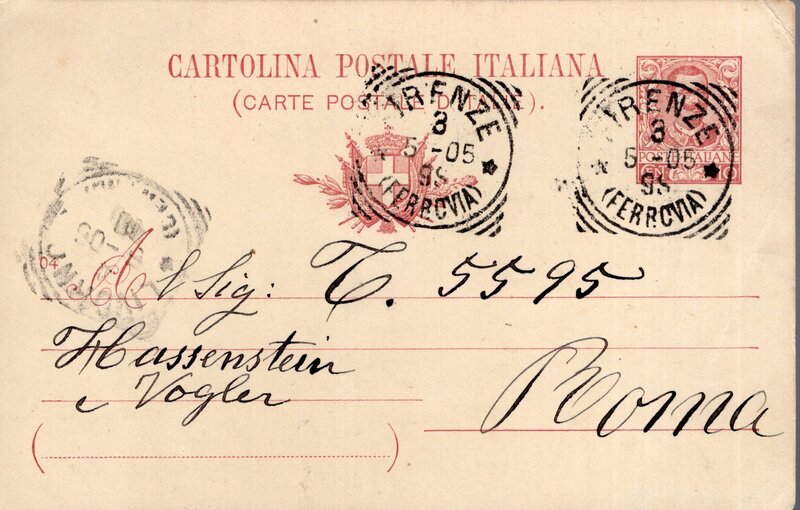 CARTOLINA POSTALE ITALIANA
(CARTE POSTALE D'ITALIE).
FIRENZE
3
5-05
9S
(FERROVIA)
FIRENZE
3
5-05
9S
(FERROVIA)
POSTE ITALIANE
04
Al Sig: T. 5595
Hassenstein
e Vogler
Roma